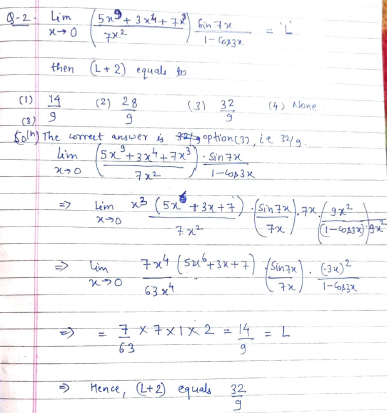 Q-2. Lim x→0 (5x⁹ + 3x⁴ + 7x³ / 7x²) Sin 7x / 1 - Cos3x = 'L'
then (L+2) equals to
(1) 14/9 (2) 28/9 (3) 32/9 (4) None
(3)
Solⁿ) The correct answer is option(3), i.e 32/9.
lim x→0 (5x⁹ + 3x⁴ + 7x³ / 7x²) · Sin7x / 1-Cos3x
⇒ Lim x→0 x³ (5x⁶ + 3x + 7) / 7x² · (Sin7x / 7x) · 7x · (9x² / (1-cos3x)·9x²)
⇒ Lim x→0 7x⁴ (5x⁶ + 3x + 7) / 63x⁴ (Sin7x / 7x) · (3x)² / 1-Cos3x
⇒ = 7/63 × 7 × 1 × 2 = 14/9 = L
⇒ Hence, (L+2) equals 32/9